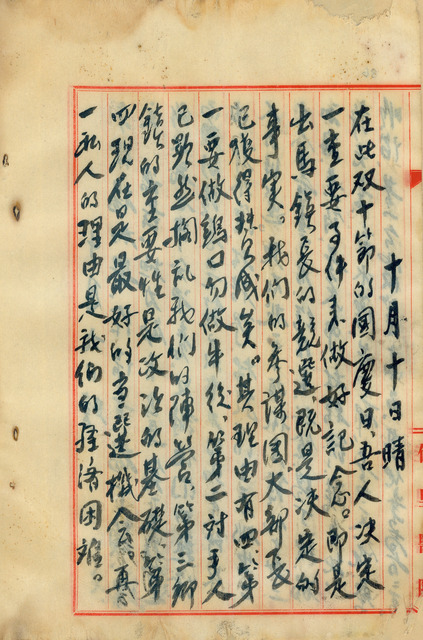 十月十日晴
在此双十節的國慶日、吾人決定
一重要事件来做好記念。即是
出馬鎮長的競選、既是決定的
事実。我們的参謀団大部長
已獲得賛成矣。其理由有四、第
一要做鶏口勿做牛後、第二対手人
已顕然擾乱我們的陣営、第三鄉
鎮的重要性是政治的基礎、第
四現在是最好的當選機会。再
一私人的理由是我們的経済困難。